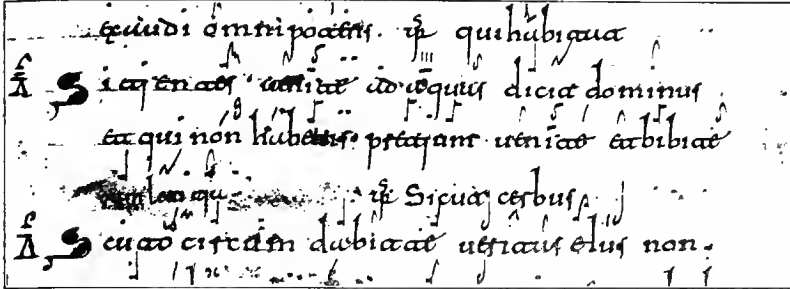 exaudi omnipotens. ps qui habitat
A Sitientes uenite ad aquas dicit dominus
et qui non habetis pretium uenite et bibite
ps Sicut cerbus
A Scuto circumdabit te ueritas eius non